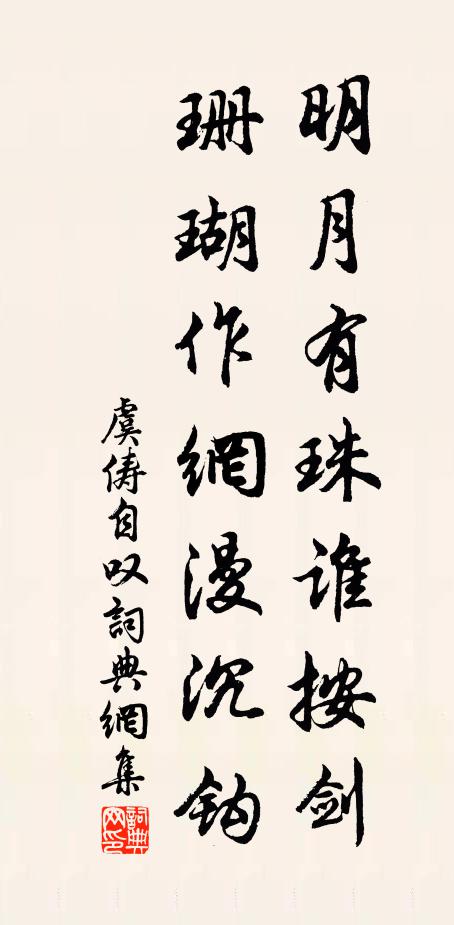 明月有珠谁按剑
珊瑚作網漫沉钩
虞俦自叹詞典網集
詞典
网印